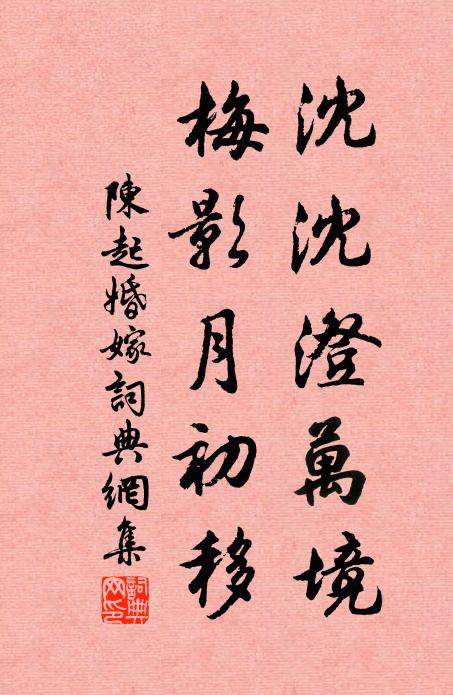 沈沈澄萬境
梅影月初移
陳起婚嫁詞典網集
詞典網印